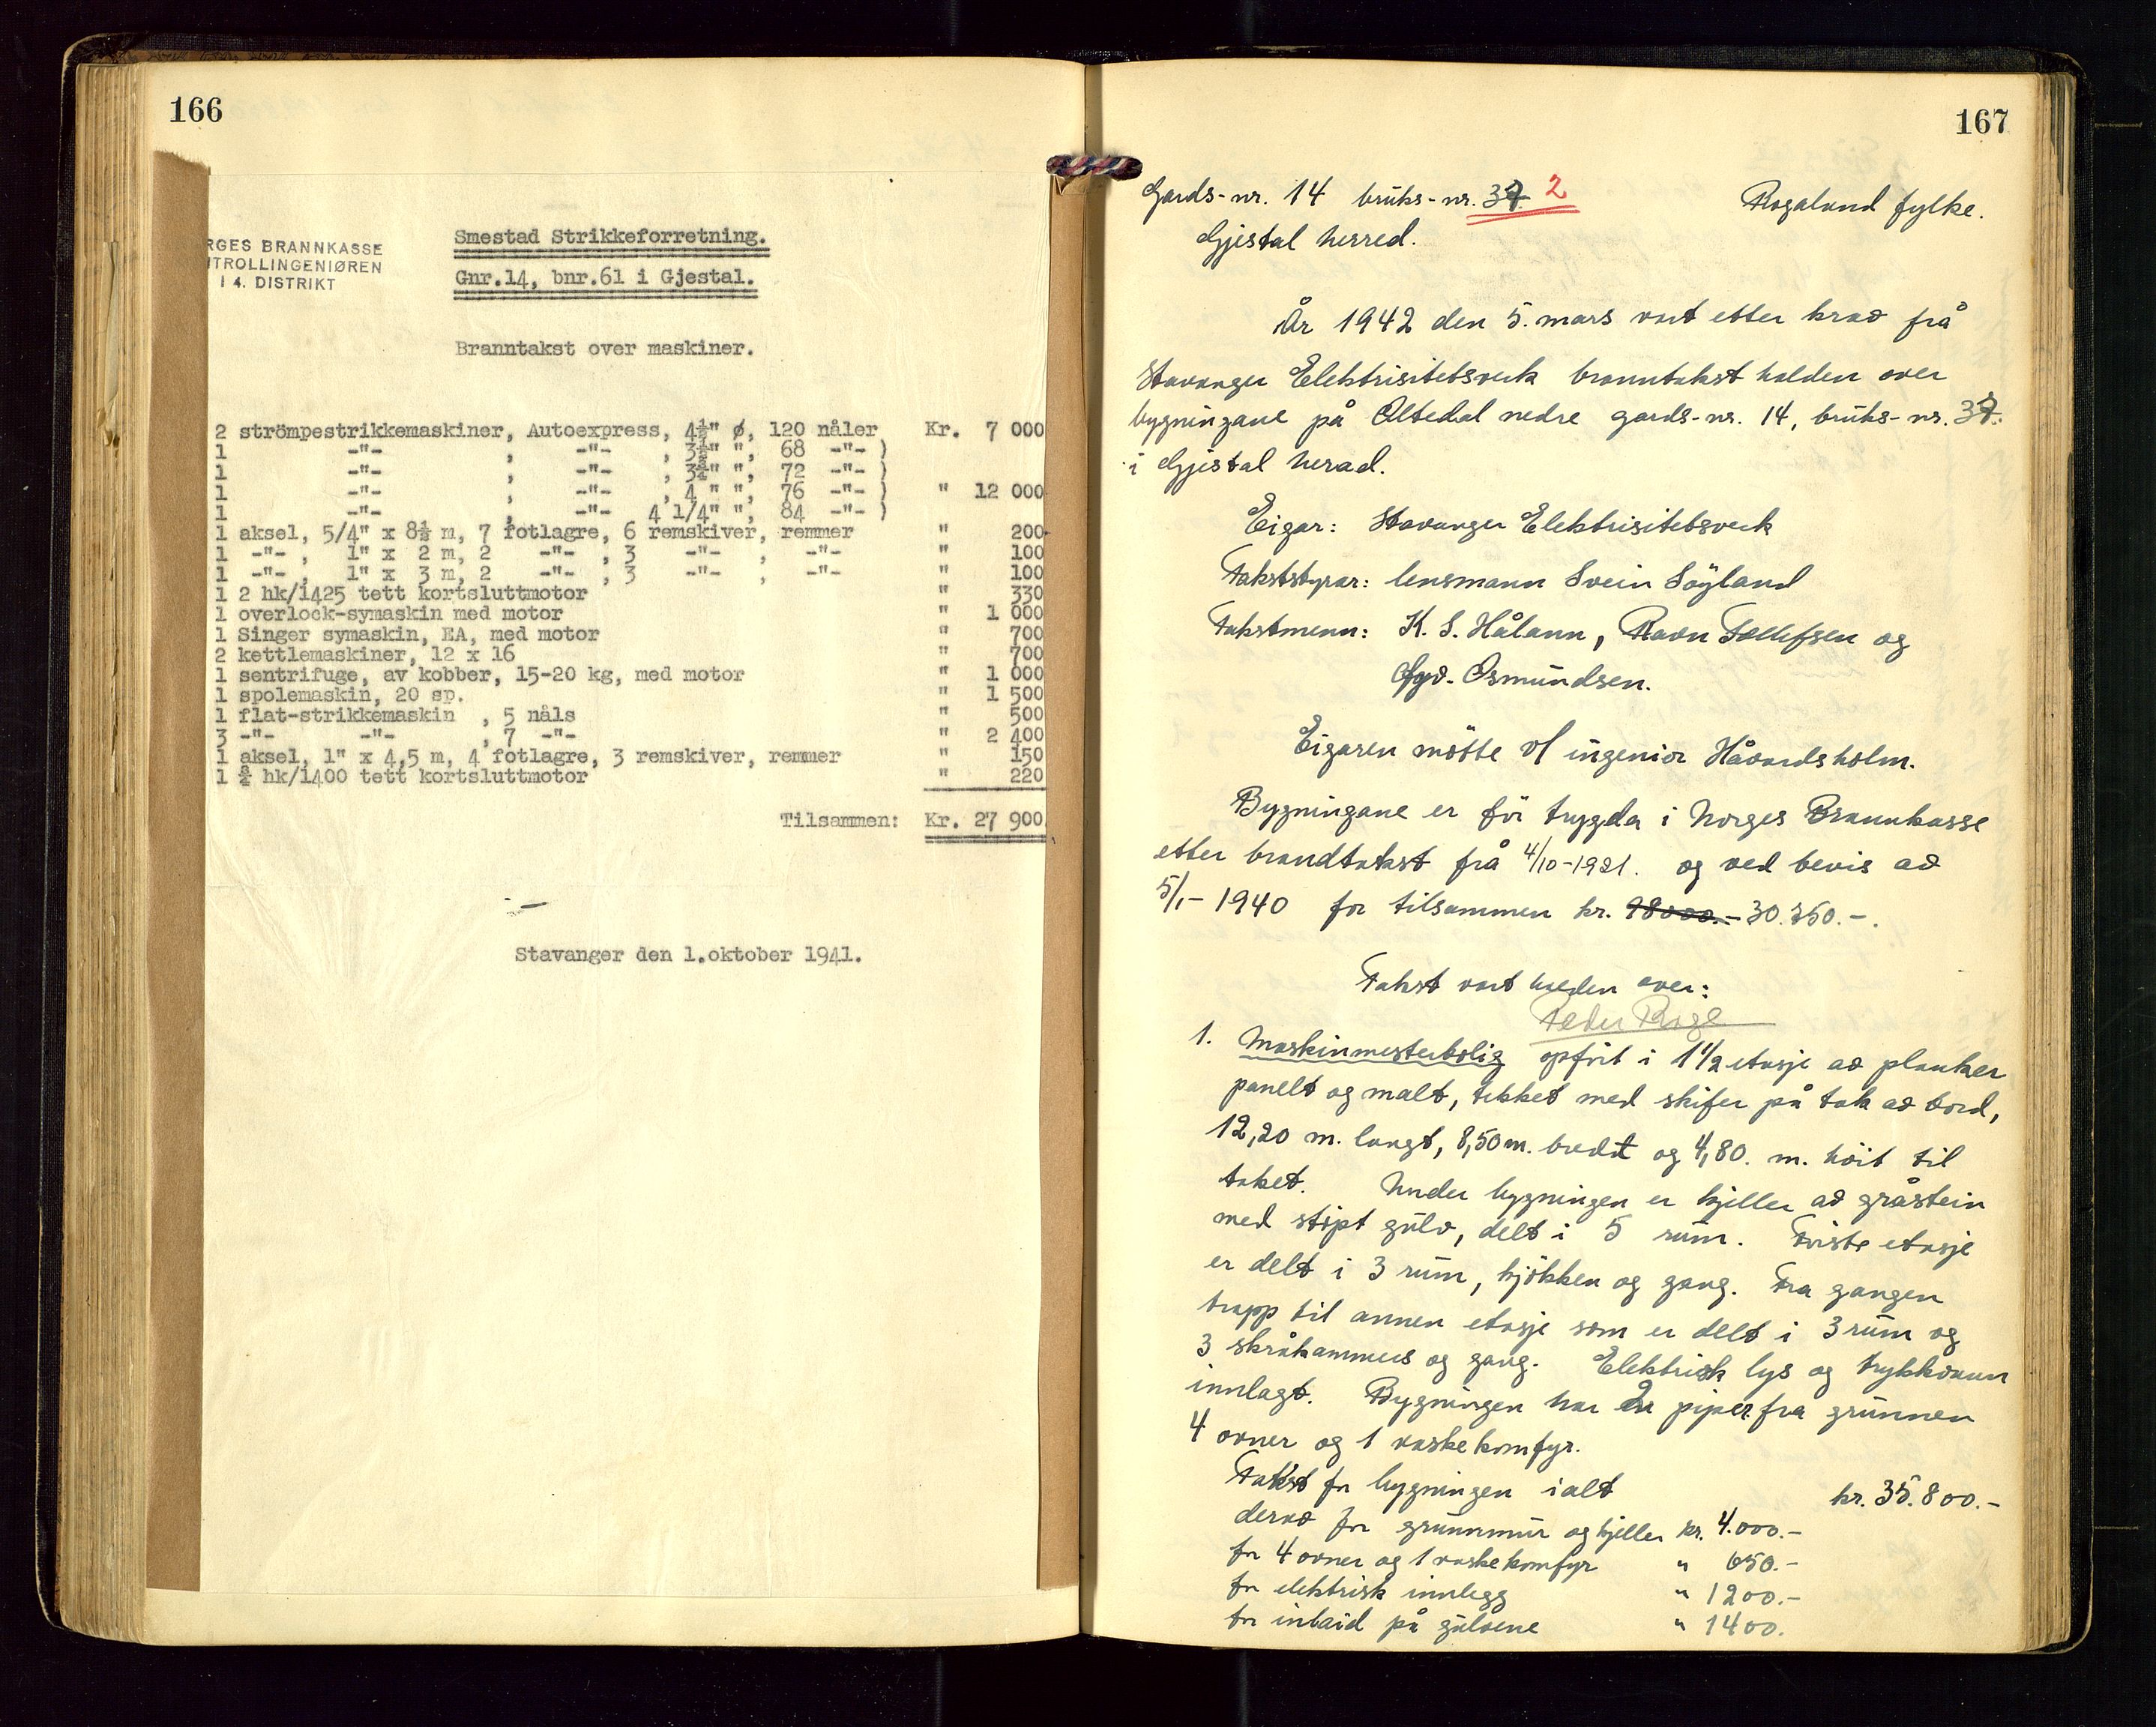 166
RGES BRANNKASSE
NTROLLINGENIØREN
I 4. DISTRIKT
Smestad Strikkeforretning.
Gnr.14, bnr.61 i Gjestal.
Branntakst over maskiner.
2 strömpestrikkemaskiner, Autoexpress, 4½" ø, 120 nåler Kr. 7 000
1 -"- , -"- , 3½" ", 68 -"- )
1 -"- , -"- , 3¾" ", 72 -"- )
1 -"- , -"- , 4 " ", 76 -"- ) " 12 000
1 -"- , -"- 4 1/4" ", 84 -"- )
1 aksel, 5/4" x 8½ m, 7 fotlagre, 6 remskiver, remmer " 200
1 -"- , 1" x 2 m, 2 -"- , 3 -"- , -"- " 100
1 -"- , 1" x 3 m, 2 -"- , 3 -"- , -"- " 100
1 2 hk/1425 tett kortsluttmotor " 330
1 overlock-symaskin med motor " 1 000
1 Singer symaskin, EA, med motor " 700
2 kettlemaskiner, 12 x 16 " 700
1 sentrifuge, av kobber, 15-20 kg, med motor " 1 000
1 spolemaskin, 20 sp. " 1 500
1 flat-strikkemaskin , 5 nåls " 500
3 -"- -"- , 7 -"- " 2 400
1 aksel, 1" x 4,5 m, 4 fotlagre, 3 remskiver, remmer " 150
1 ¾ hk/1400 tett kortsluttmotor " 220
Tilsammen: Kr. 27 900
Stavanger den 1.oktober 1941.
167
Gards-nr. 14 bruks-nr. 37 2 Rogaland fylke.
Gjestal herred.
År 1942 den 5. mars vart etter krav frå
Stavanger Elektrisitetsverk branntakst halden over
bygningane på Oltedal nedre gards-nr. 14, bruks-nr. 37.
i Gjestal herad.
Eigar: Stavanger Elektrisitetsverk
Takststyrar: lensmann Svein Söyland
Takstmenn: K. S. Håland, Ravn Tollefsen og
Osmundsen.
Eigaren møtte v/ ingeniør Håvardsholm.
Bygningane er för trygda i Norges Brannkasse
etter brandtakst frå 4/10-1921. og ved bevis av
5/1-1940 for tilsammen kr. 98000.- 30.750.-.
Takst vart halden over:
Peder Rage
1. Maskinmesterbolig opført i 1 1/2 etasje av planker
panelt og malt, tekket med skifer på tak av bord,
12,20 m. langt, 8,50 m. bredt og 4,80. m. høit til
taket. Under bygningen er kjeller av gråstein
med støpt gulv, delt i 5 rum. Første etasje
er delt i 3 rum, kjøkken og gang. Fra gangen
trapp til annen etasje som er delt i 3 rum og
3 skråkammers og gang. Elektrisk lys og trykkvann
innlagt. Bygningen har 2 piper fra grunnen
4 ovner og 1 vaskekomfyr.
Takst for bygningen ialt kr. 35.800.-
derav for grunnmur og kjeller kr. 4.000.-
for 4 ovner og 1 vaskekomfyr " 650.-
for elektrisk innlegg " 1200.-
for inlaid på gulvene " 1400.